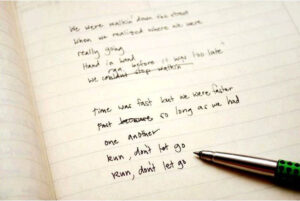 We were walkin down the street
When we realized where we were
really going
Hand in hand
ran before it was too late
We couldn't stop walkin
Time was fast but we were faster
Fast because so long as we had
one another
Run, don't let go
Run, don't let go